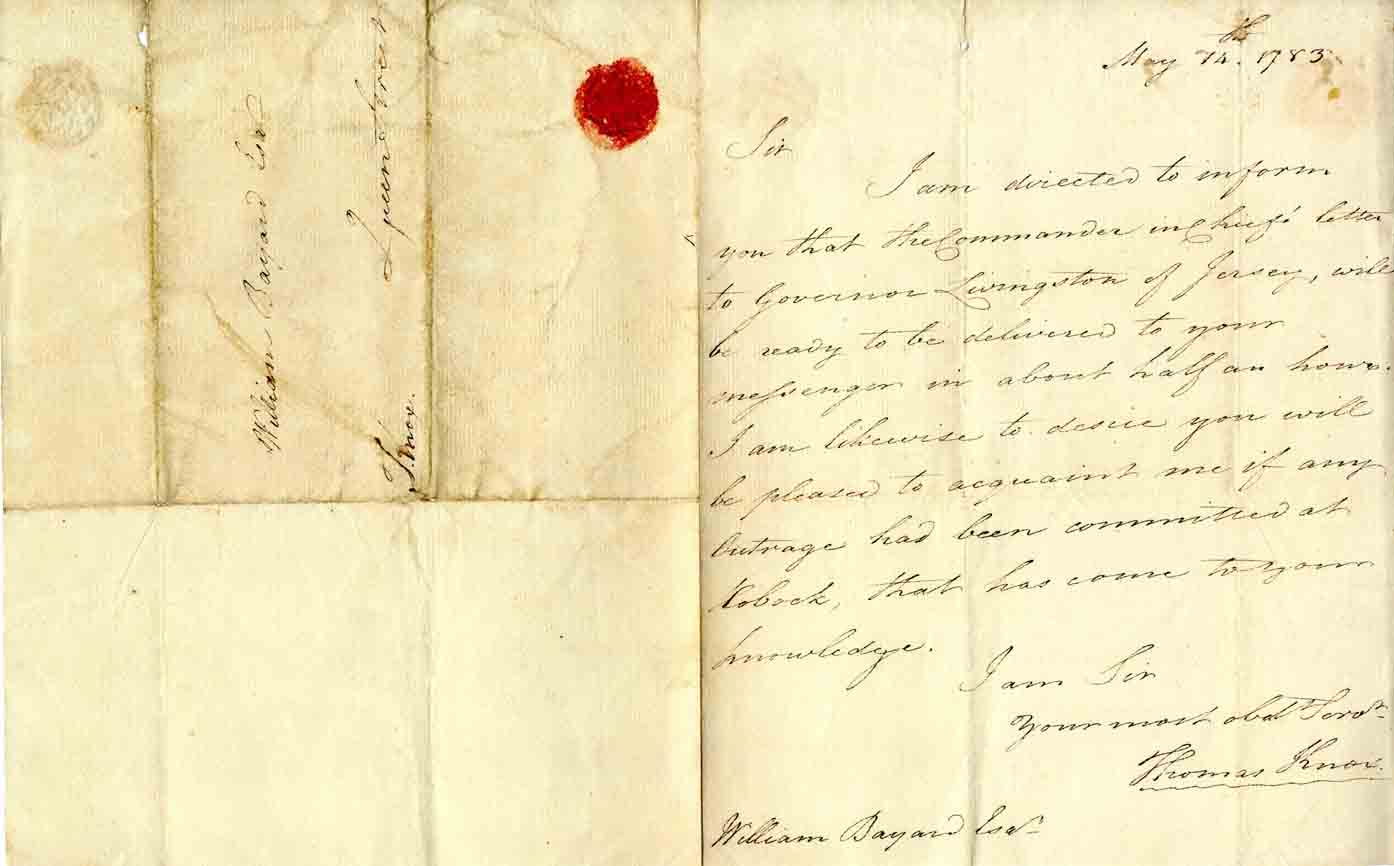 William Bayard Esqr
Queen Street
T. Knox.
May 14th. 1783
Sir
I am directed to inform
you that the Commander in Chief's letter
to Governor Livingston of Jersey, will
be ready to be delivered to your
messenger in about half an hour.
I am likewise to desire you will
be pleased to acquaint me if any
Outrage had been committed at
Hobock, that has come to your
knowledge.
I am Sir
Your most obdt Servt.
Thomas Knox.
William Bayard Esqr.